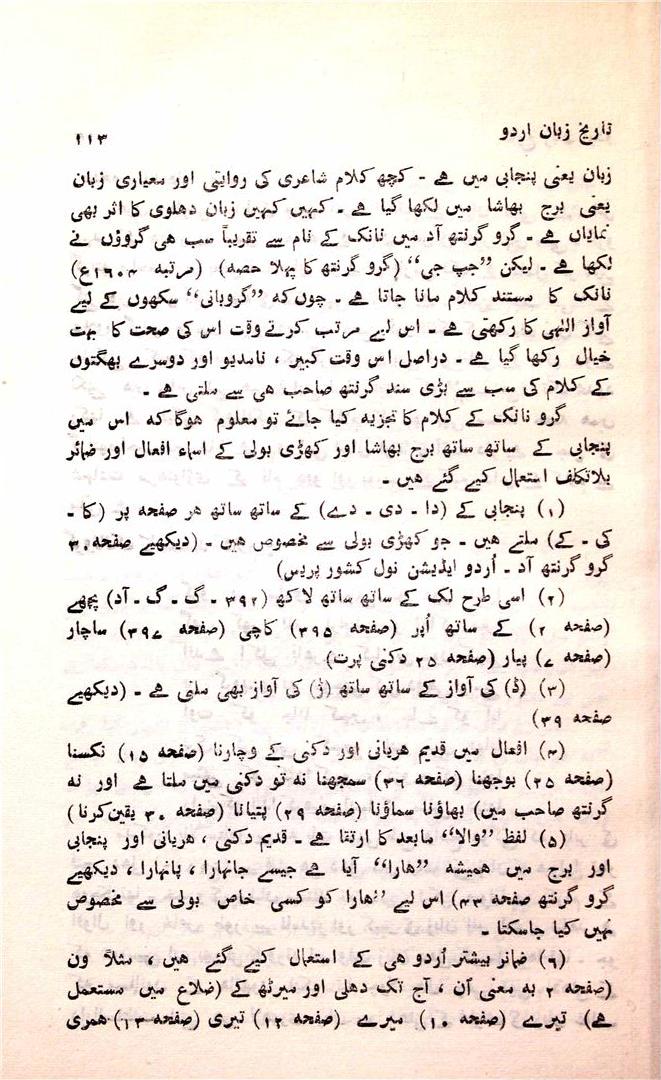 تاریخ زبان اردو ۱۱۳
زبان یعنی پنجابی میں ہے ۔ کچھ کلام شاعری کی روایتی اور معیاری زبان
یعنی برج بھاشا میں لکھا گیا ہے ۔ کہیں کہیں زبان دھلوی کا اثر بھی
نمایاں ہے ۔ گرو گرنتھ آد میں نانک کے نام سے تقریباً سب ھی گروؤں نے
لکھا ہے ۔ لیکن ”جپ جی“ (گرو گرنتھ کا پہلا حصہ) (مرتبہ ۱۶۰۴ع)
نانک کا مستند کلام مانا جاتا ہے ۔ چوں کہ ”گروبانی“ سکھوں کے لیے
آواز اللہی کا رکھتی ہے ۔ اس لیے مرتب کرتے وقت اس کی صحت کا بہت
خیال رکھا گیا ہے ۔ دراصل اس وقت کبیر ، نامدیو اور دوسرے بھگتوں
کے کلام کی سب سے بڑی سند گرنتھ صاحب ھی سے ملتی ہے ۔
گرو نانک کے کلام کا تجزیہ کیا جائے تو معلوم ھوگا کہ اس میں
پنجابی کے ساتھ ساتھ برج بھاشا اور کھڑی بولی کے اسماء افعال اور ضمائر
بلاتکلف استعمال کیے گئے ھیں ۔
(۱) پنجابی کے (دا ۔ دی ۔ دے) کے ساتھ ساتھ ھر صفحہ پر (کا ۔
کی ۔ کے) ملتے ھیں ۔ جو کھڑی بولی سے مخصوص ھیں ۔ (دیکھیے صفحہ ۳۰
گرو گرنتھ آد ۔ اُردو ایڈیشن نول کشور پریس)
(۲) اسی طرح لک کے ساتھ ساتھ لاکھ (۳۹۲ ۔ گ ۔ گ ۔ آد) پچھے
(صفحہ ۲) کے ساتھ اُپر (صفحہ ۳۹۵) کاچی (صفحہ ۳۹۷) ساچار
(صفحہ ۷) پیار (صفحہ ۲۵ دکنی پرت)
(۳) (ڈ) کی آواز کے ساتھ ساتھ (ڑ) کی آواز بھی ملتی ہے ۔ (دیکھیے
صفحہ ۳۹)
(۴) افعال میں قدیم ھریانی اور دکنی کے وچارنا (صفحہ ۱۵) نکسنا
(صفحہ ۲۵) بوجھنا (صفحہ ۳۶) سمجھنا نہ تو دکنی میں ملتا ہے اور نہ
گرنتھ صاحب میں) بھاؤنا سماؤنا (صفحہ ۲۹) پتیانا (صفحہ ۳۰ یقین کرنا)
(۵) لفظ ”والا“ مابعد کا ارتقا ہے ۔ قدیم دکنی ، ھریانی اور پنجابی
اور برج میں ھمیشہ ”ھارا“ آیا ہے جیسے جانہارا ، پانہارا ، دیکھیے
گرو گرنتھ صفحہ ۴۳) اس لیے ”ھارا کو کسی خاص بولی سے مخصوص
نہیں کیا جاسکتا ۔
(۶) ضمائر بیشتر اُردو ھی کے استعمال کیے گئے ھیں ، مثلاً ون
(صفحہ ۲ بہ معنی اُن ، آج تک دھلی اور میرٹھ کے (ضلاع میں مستعمل
ہے) تیرے (صفحہ ۱۰) میرے (صفحہ ۱۲) تیری (صفحہ ۱۳) ھمری